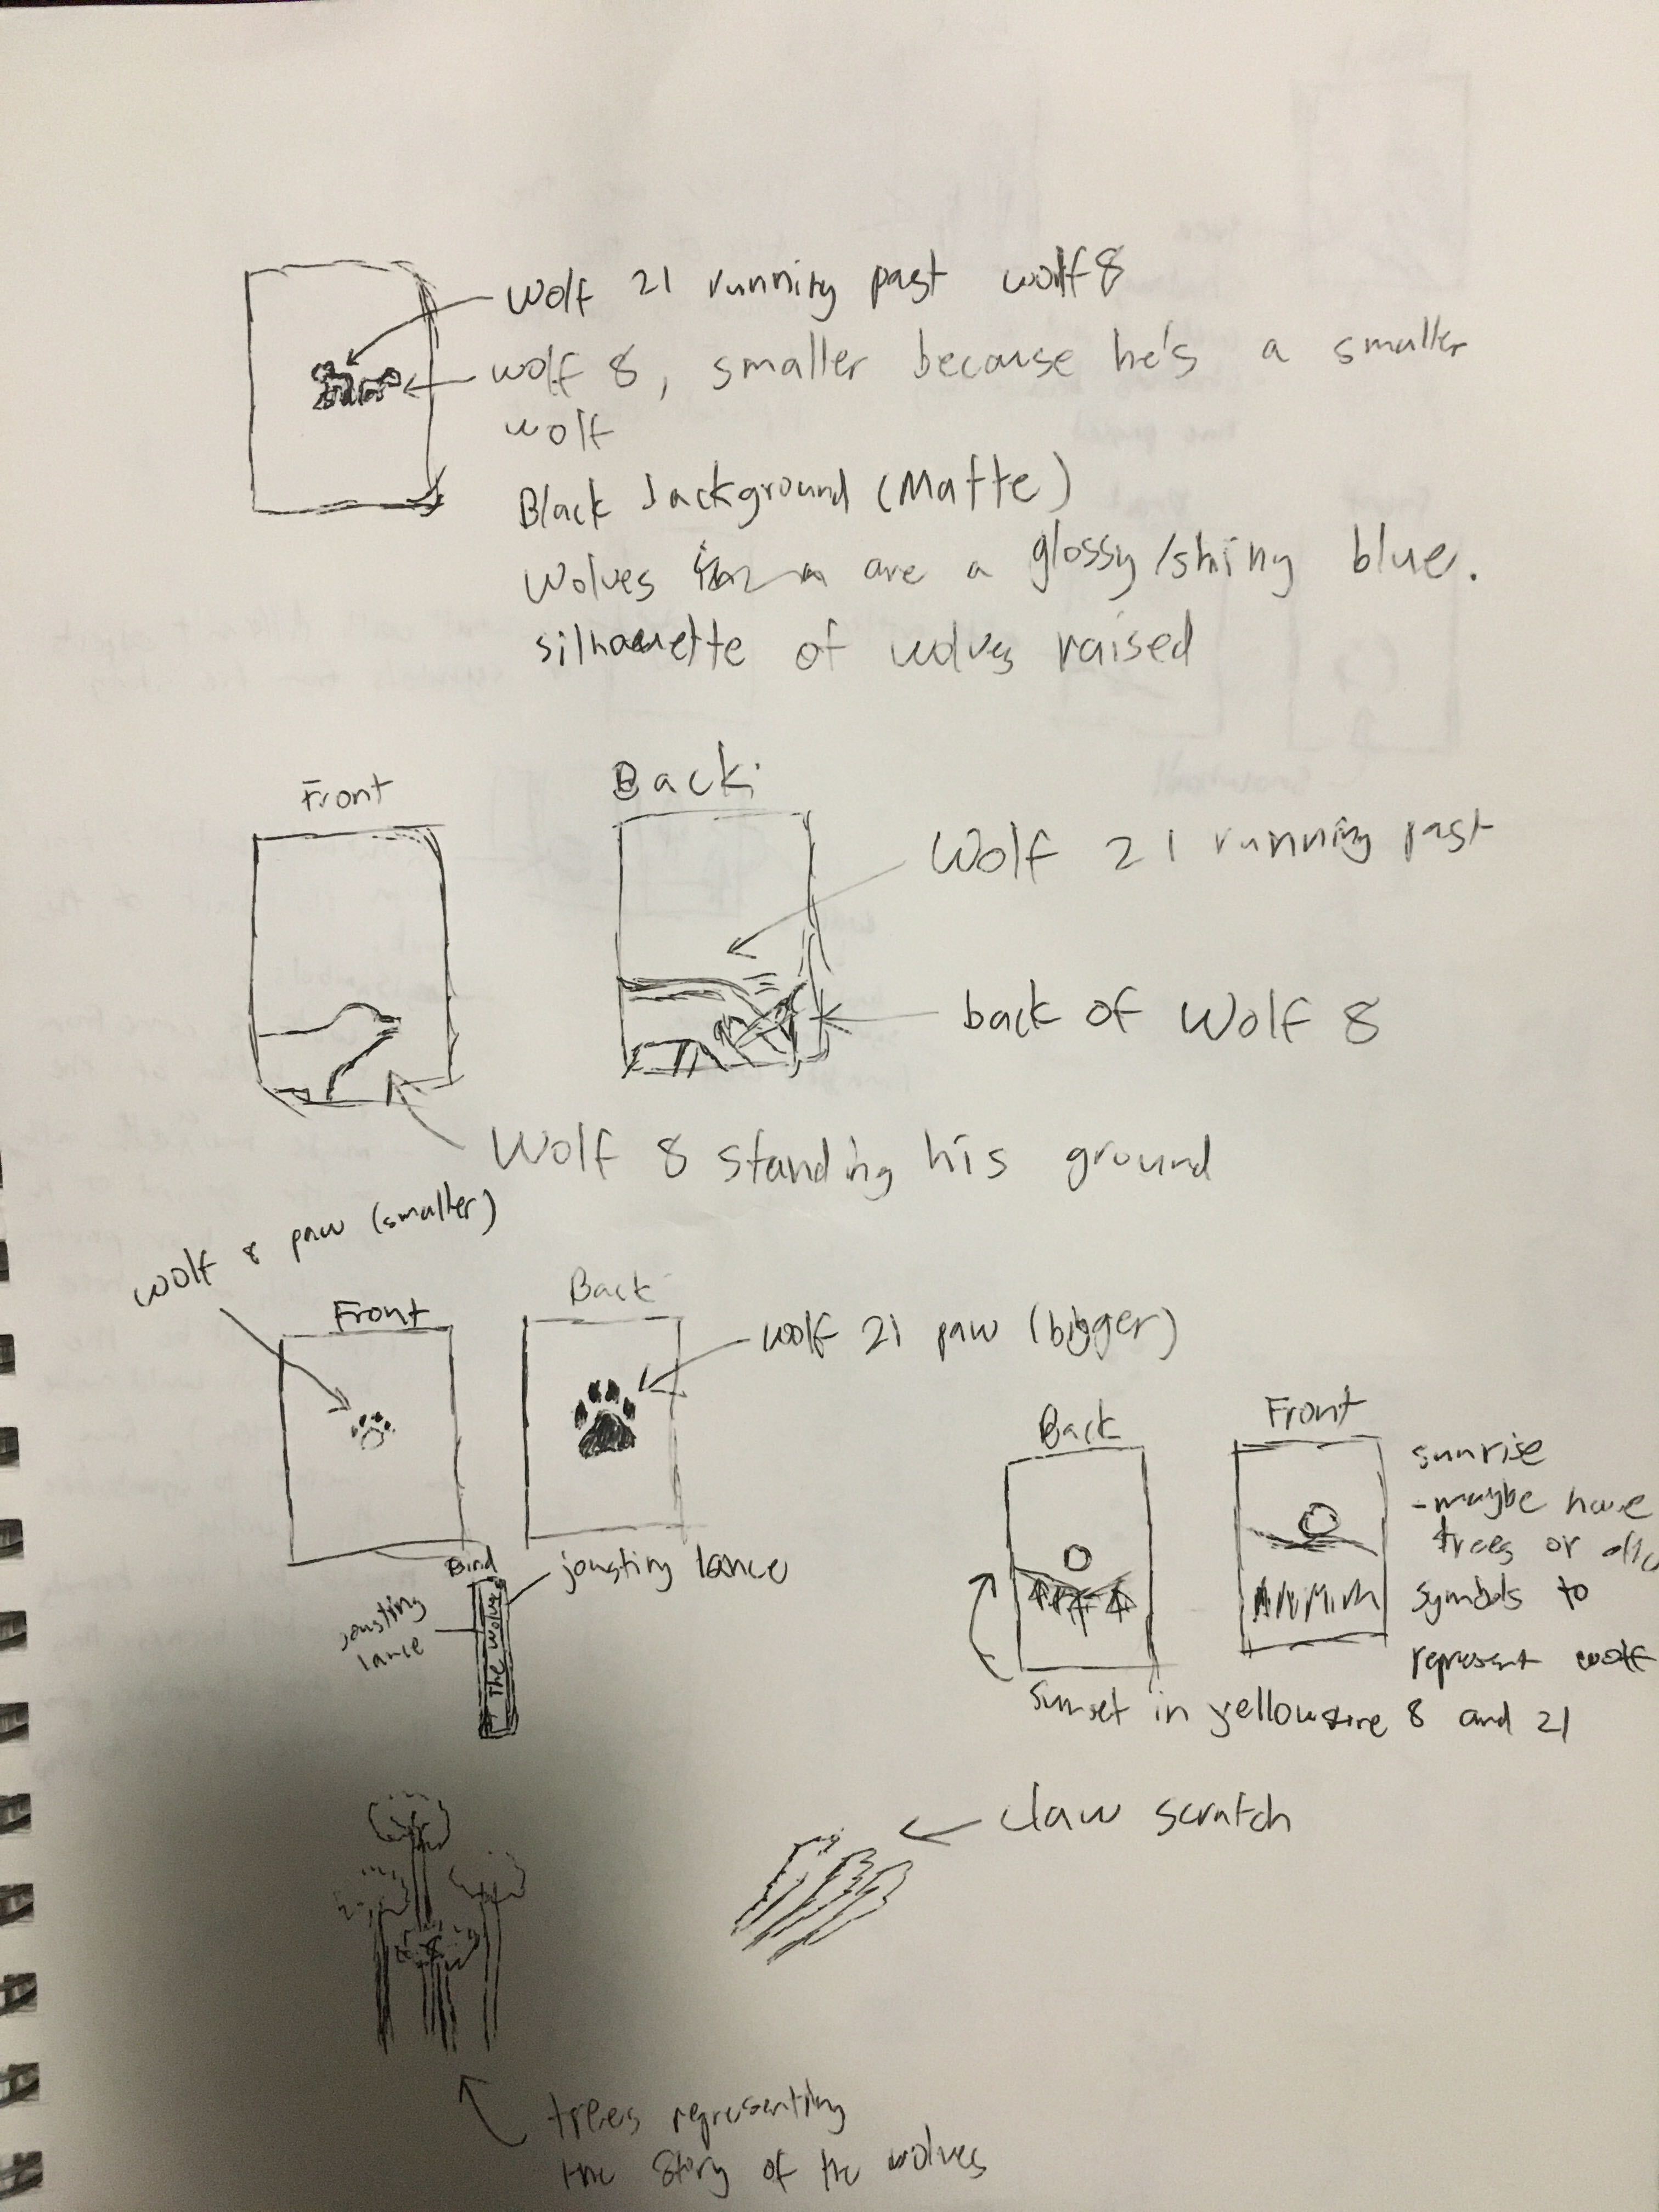 Wolf 21 running past wolf 8
wolf 8, smaller because he's a smaller
wolf
Black background (Matte)
Wolves are a glossy/shiny blue.
silhouette of wolves raised
Front
Back:
Wolf 21 running past
back of Wolf 8
Wolf 8 standing his ground
wolf 8 paw (smaller)
Front
Back
wolf 21 paw (bigger)
Bind
jousting lance
jousting
lance
The Wolves
Back
Front
sunrise
-maybe have
trees or
symbols to
represent wolf
sunset in yellowstone 8 and 21
claw scratch
trees representing
the story of the wolves